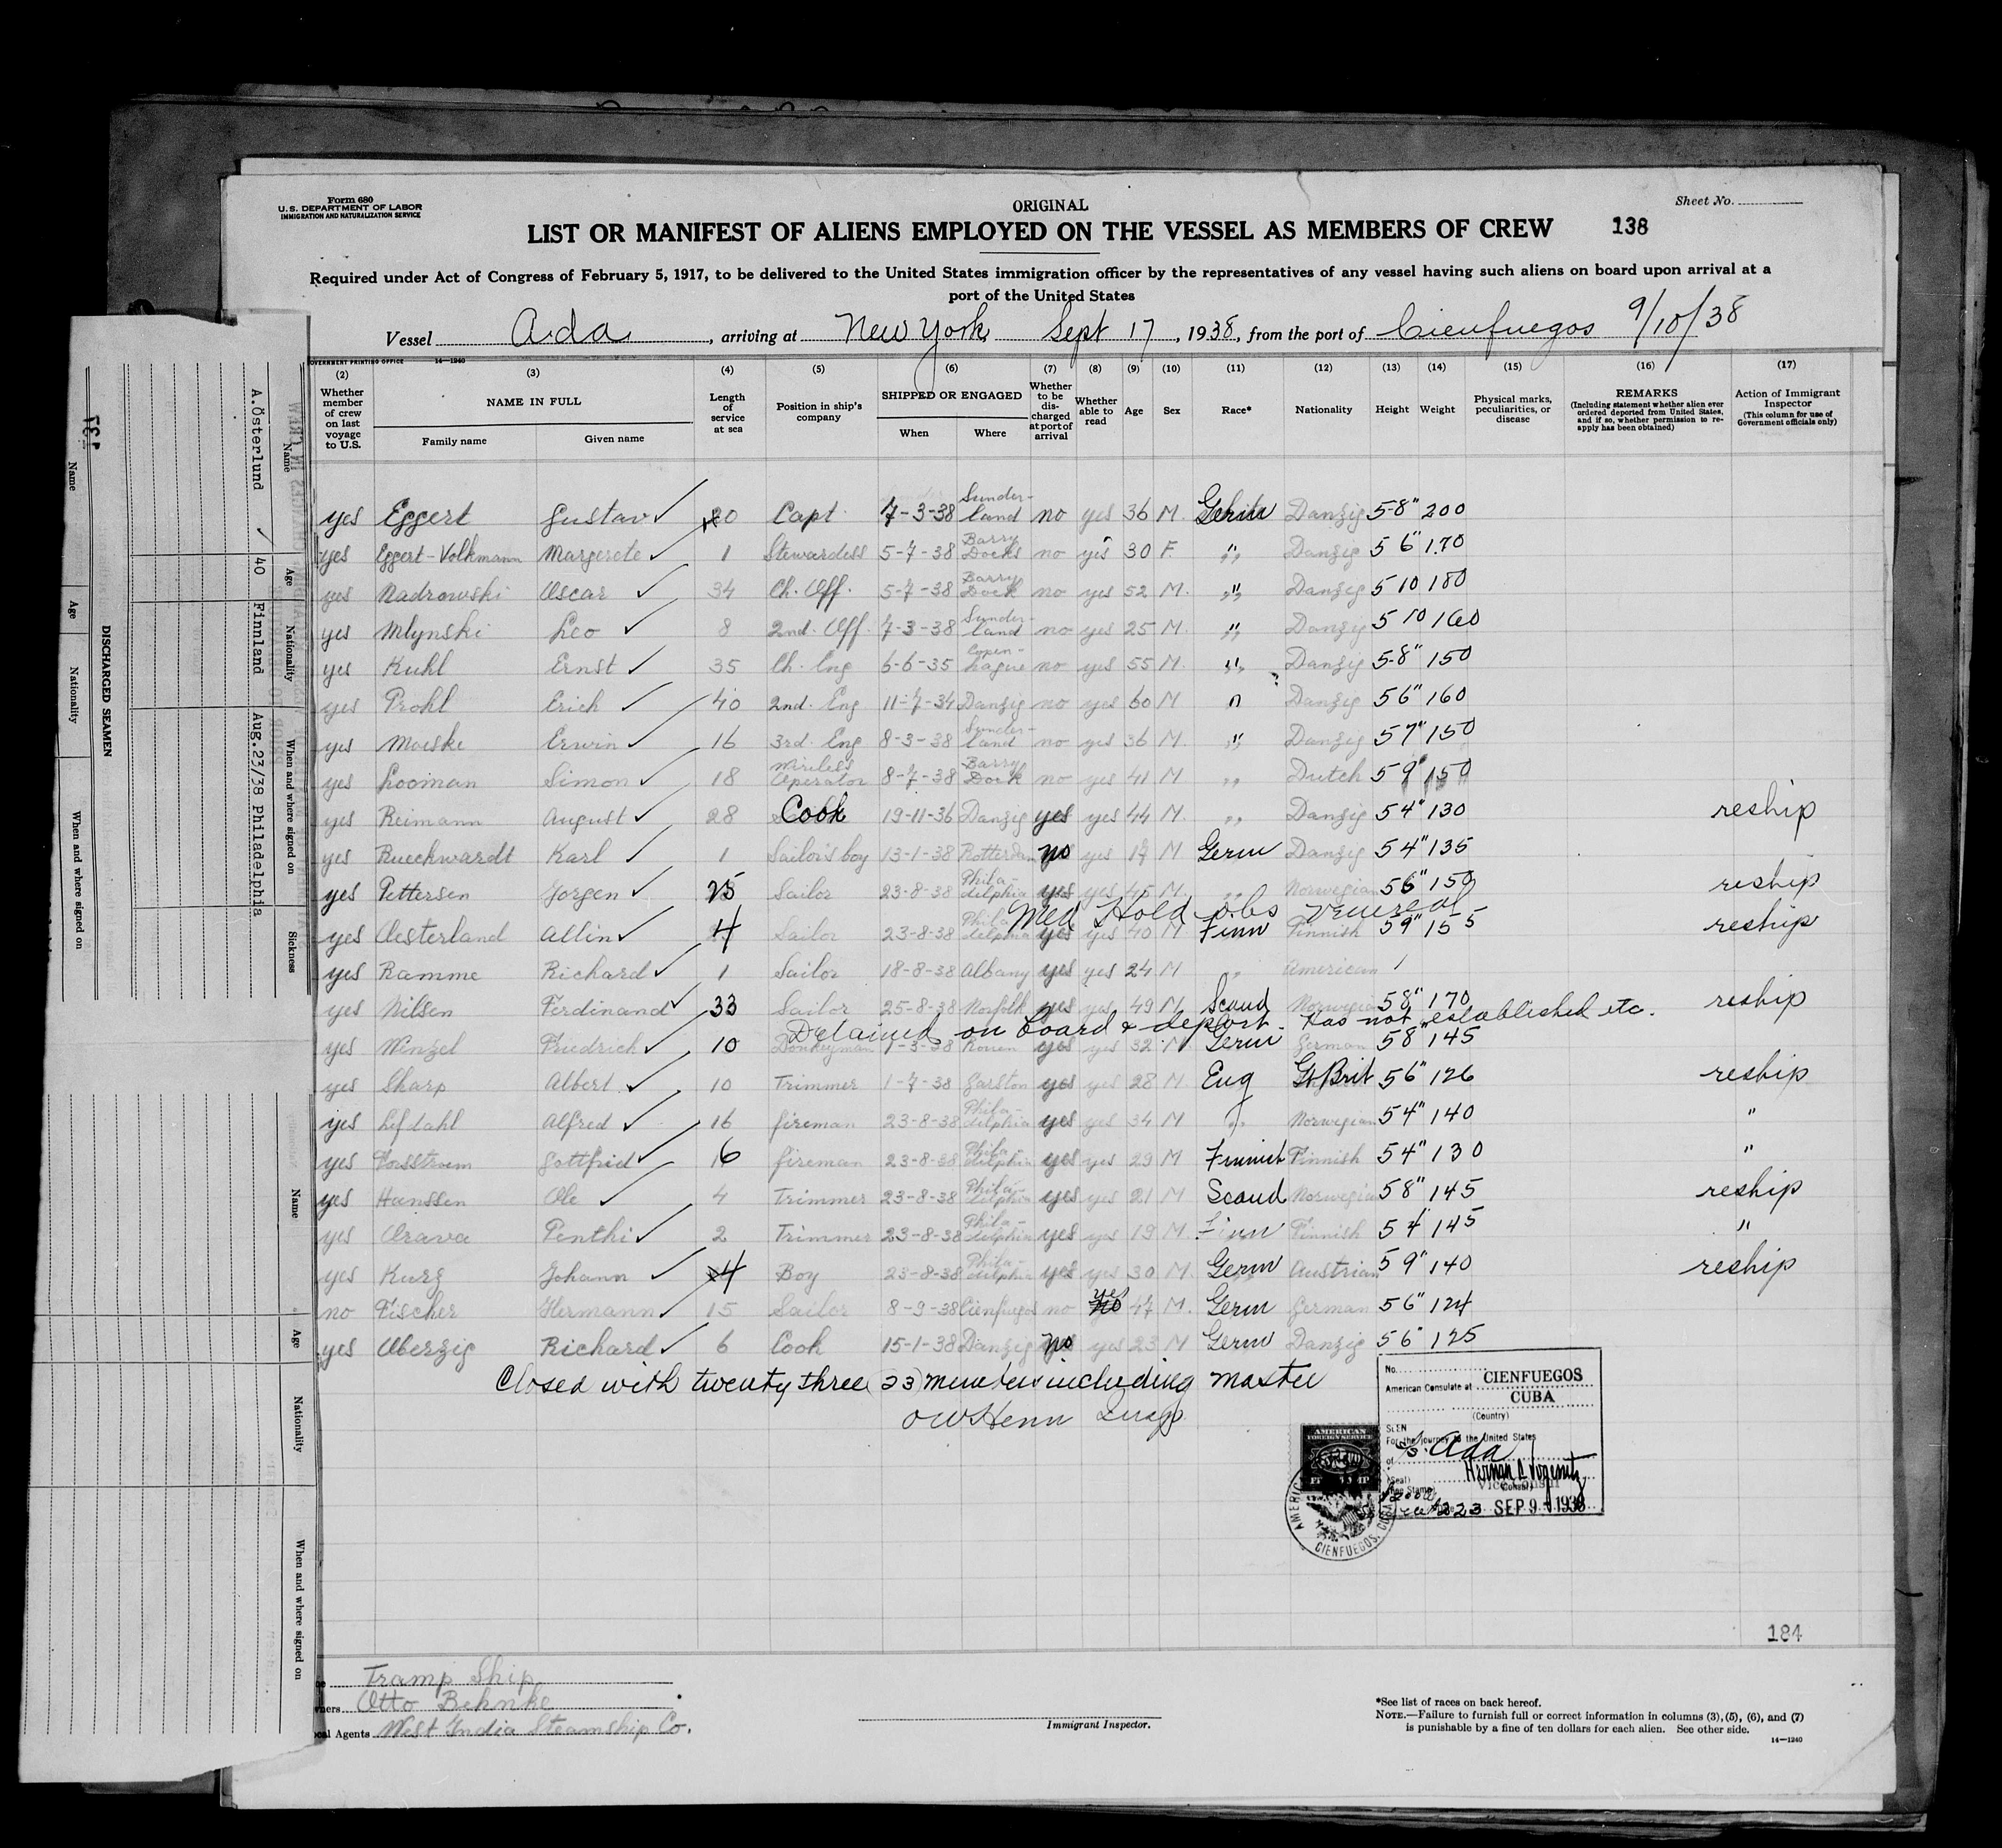 Form 680
U.S. DEPARTMENT OF LABOR
IMMIGRATION AND NATURALIZATION SERVICE
ORIGINAL
Sheet No.
LIST OR MANIFEST OF ALIENS EMPLOYED ON THE VESSEL AS MEMBERS OF CREW 138
Required under Act of Congress of February 5, 1917, to be delivered to the United States immigration officer by the representatives of any vessel having such aliens on board upon arrival at a
port of the United States
Vessel Ada, arriving at New York Sept 17, 1938, from the port of Cienfuegos 9/10/38
GOVERNMENT PRINTING OFFICE 14—1240
(2) (3) (4) (5) (6) (7) (8) (9) (10) (11) (12) (13) (14) (15) (16) (17)
Whether member of crew on last voyage to U.S.
NAME IN FULL
Family name Given name
Length of service at sea
Position in ship's company
SHIPPED OR ENGAGED
When Where
Whether to be discharged at port of arrival
Whether able to read
Age
Sex
Race*
Nationality
Height
Weight
Physical marks, peculiarities, or disease
REMARKS
(Including statement whether alien ever ordered deported from United States, and if so, whether permission to reapply has been obtained)
Action of Immigrant Inspector
(This column for use of Government officials only)
yes Eggert Gustav ✓ 20 Capt. 7-3-38 Sunder-land no yes 36 M. Danzig 5-8" 200
yes Eggert-Volkmann Margerete ✓ 1 Stewardess 5-7-38 Barry Docks no yes 30 F. " Danzig 5 6" 170
yes Nadrowski Oscar ✓ 34 Ch. Off. 5-7-38 Barry Dock no yes 52 M. " Danzig 5 10 180
yes Mlynski Leo ✓ 8 2nd. Off. 7-3-38 Sunder-land no yes 25 M. " Danzig 5 10 160
yes Kuhl Ernst ✓ 35 Ch. Eng 6-6-35 Copen-hague no yes 55 M. " Danzig 5-8" 150
yes Prohl Erich ✓ 40 2nd. Eng 11-7-34 Danzig no yes 60 M " Danzig 5 6" 160
yes Moeske Erwin ✓ 16 3rd. Eng 8-3-38 Sunder-land no yes 36 M. " Danzig 5 7" 150
yes Looman Simon ✓ 18 Wireless Operator 8-7-38 Barry Dock no yes 41 M " Dutch 5 9" 150
yes Reimann August ✓ 28 Cook 19-11-36 Danzig yes yes 44 M. " Danzig 5 4" 130 reship
yes Rueckwardt Karl ✓ 1 Sailor's boy 13-1-38 Rotterdam no yes 17 M Germ Danzig 5 4" 135
yes Pettersen Jorgen ✓ 25 Sailor 23-8-38 Phila-delphia yes yes 45 M. " Norwegian 5 6" 150 reship
Med Hold obs venereal
yes Oesterland Allin ✓ 4 Sailor 23-8-38 Phila-delphia yes yes 40 M Finn Finnish 5 9" 155 reship
yes Ramme Richard ✓ 1 Sailor 18-8-38 Albany yes yes 24 M " American
yes Nilsen Ferdinand ✓ 33 Sailor 25-8-38 Norfolk yes yes 49 M Scand Norwegian 5 8" 170 reship
Detained on board & deport. Has not established etc.
yes Wenzel Friedrich ✓ 10 Donkeyman 7-3-38 Rouen yes yes 32 M. Germ German 5 8" 145
yes Sharp Albert ✓ 10 Trimmer 1-7-38 Garston yes yes 28 M Eng Gt Brit 5 6" 126 reship
yes Lefdahl Alfred ✓ 16 fireman 23-8-38 Phila-delphia yes yes 34 M " Norwegian 5 4" 140 "
yes Gottfried ✓ 6 fireman 23-8-38 Phila-delphia yes yes 29 M Finnish Finnish 5 4" 130 "
yes Hanssen Ole ✓ 4 Trimmer 23-8-38 Phila-delphia yes yes 21 M Scand Norwegian 5 8" 145 reship
yes Orava Penthi ✓ 2 Trimmer 23-8-38 Phila-delphia yes yes 19 M. Finn Finnish 5 4" 145 "
yes Kurz Johann ✓ 4 Boy 23-8-38 Phila-delphia yes yes 30 M. Germ Austrian 5 9" 140 reship
no Fischer Hermann ✓ 15 Sailor 8-9-38 Cienfuegos no yes 47 M. Germ German 5 6" 124
yes Oberzig Richard ✓ 6 Cook 15-1-38 Danzig no yes 23 M Germ Danzig 5 6" 125
Closed with twenty three (23) members including master
O W Henn
No.
American Consulate at CIENFUEGOS
CUBA
(Country)
SEEN
For the journey to the United States
of S/S. Ada
(Seal)
(Fee Stamp)
Vice Consul
(Consul)
SEP 9 - 1938
AMERICAN
FOREIGN SERVICE
FEE STAMP
CIENFUEGOS, CUBA
184
Tramp Ship
Owners Otto Behnke
Local Agents West India Steamship Co.
Immigrant Inspector.
*See list of races on back hereof.
NOTE.—Failure to furnish full or correct information in columns (3), (5), (6), and (7)
is punishable by a fine of ten dollars for each alien. See other side.
14—1240
137
DISCHARGED SEAMEN
Name Age Nationality When and where signed on
Name Age Nationality When and where signed on Sickness
A.Österlund ✓ 40 Finnland Aug.23/38 Philadelphia
Name Age Nationality When and where signed on